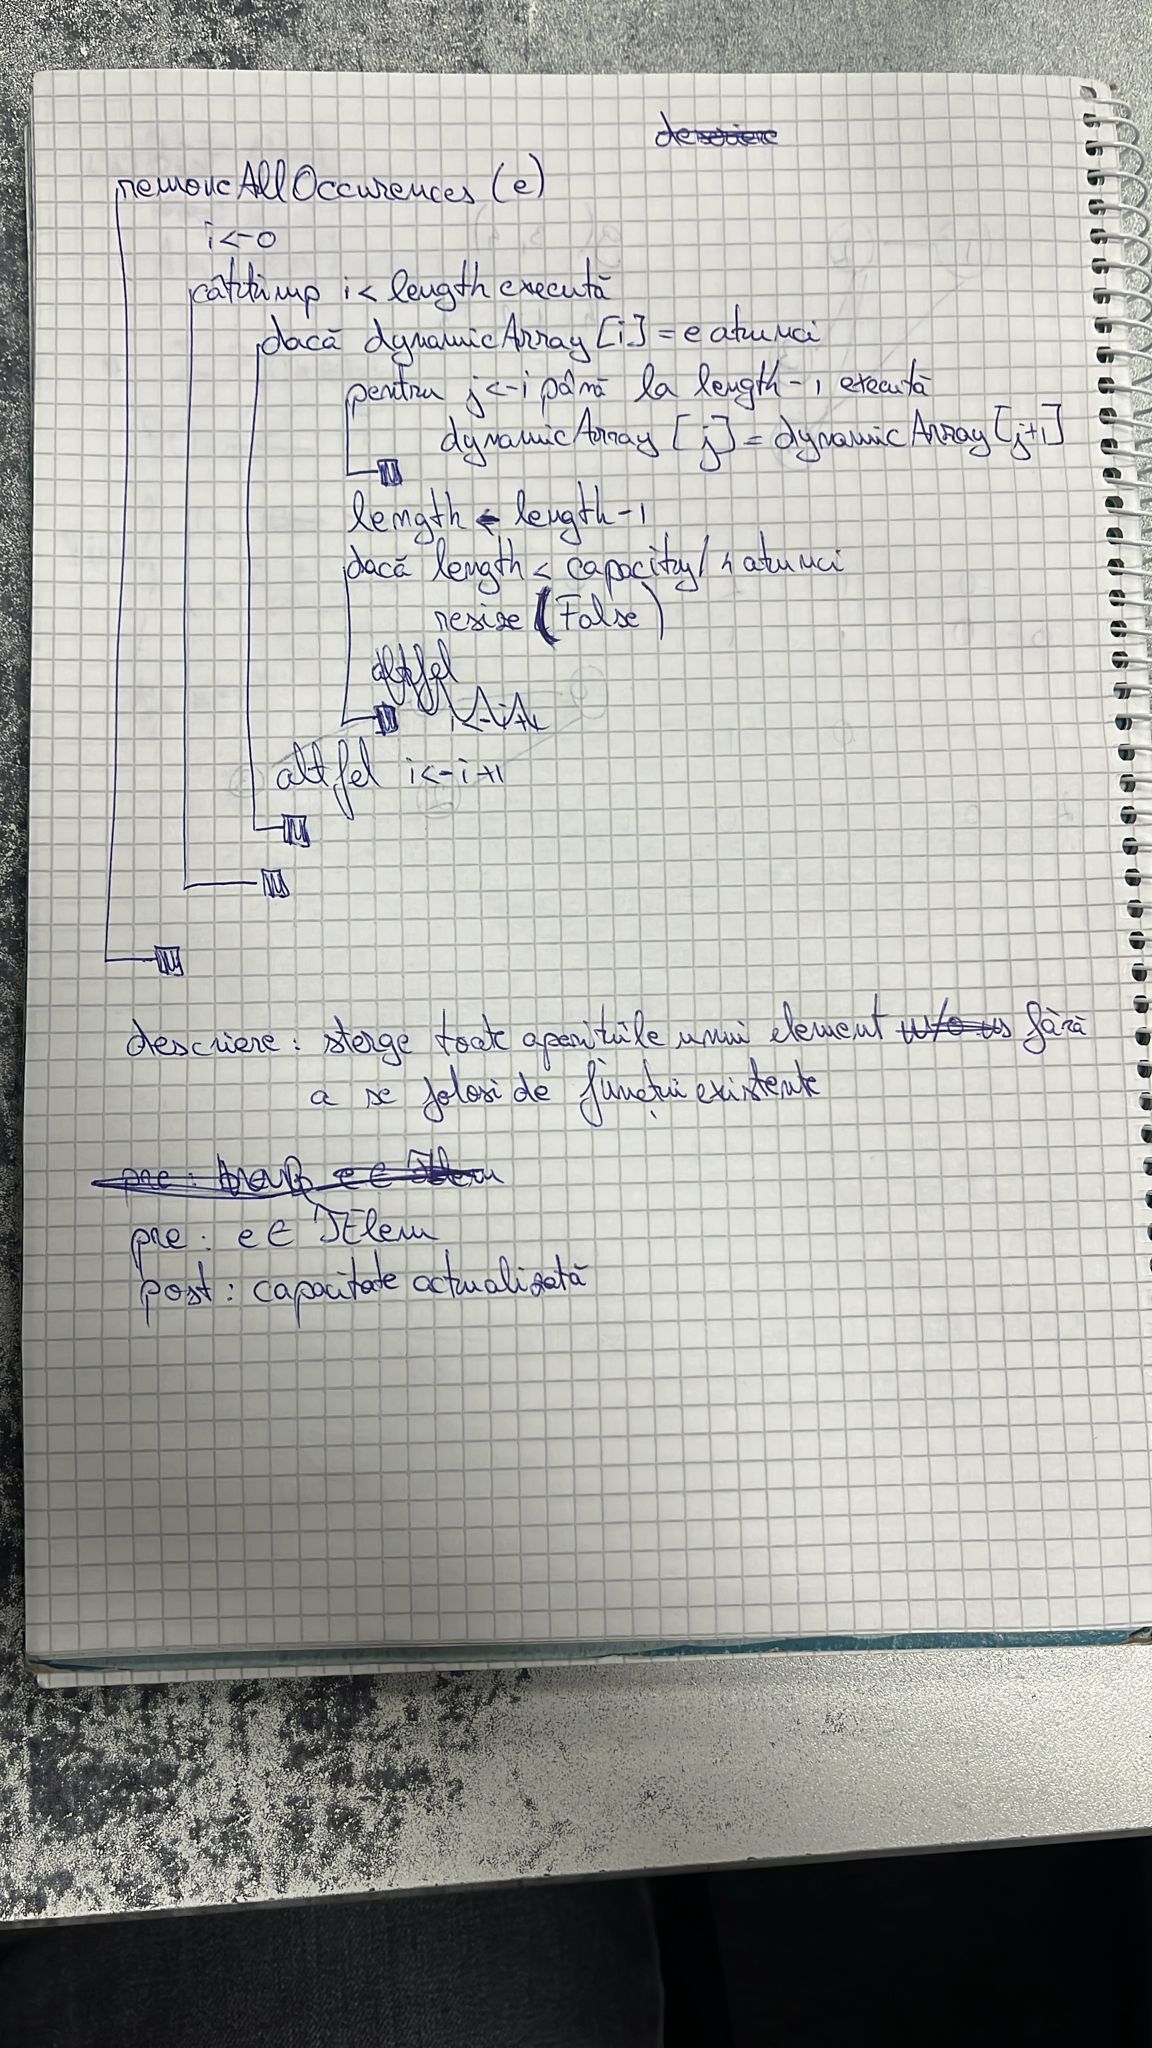 removeAllOccurences (e)
i<-0
câttimp i < length execută
dacă dynamicArray [i] = e atunci
pentru j<-i până la length-1 execută
dynamicArray [j] = dynamicArray [j+1]
length <- length-1
dacă length < capacity/4 atunci
resize (False)
altfel
i<-i+1
altfel i<-i+1
descriere: sterge toate aparitiile unui element fără
a se folosi de funcții existente
pre: e ∈ TElem
post: capacitate actualizată